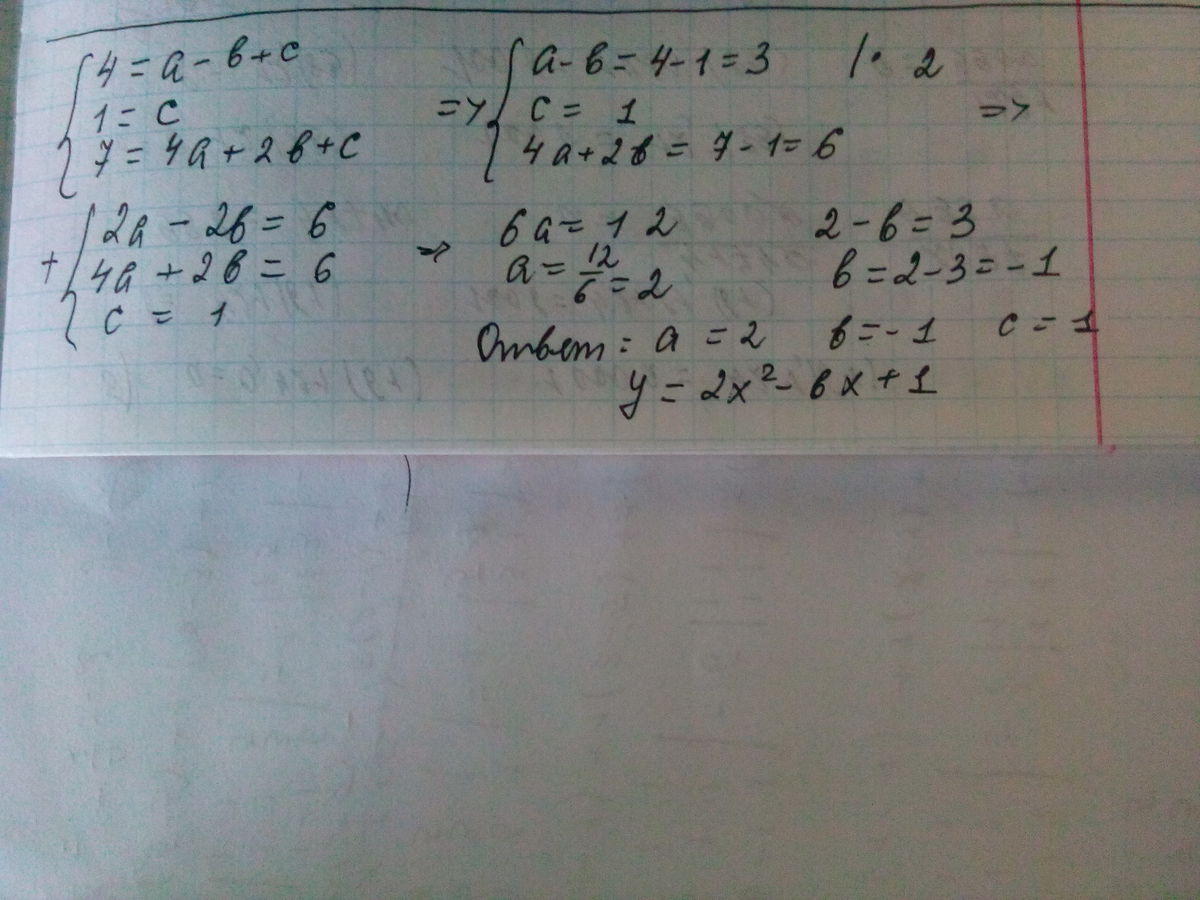 4 = a - b + c
1 = c
7 = 4a + 2b + c
=> a - b = 4 - 1 = 3 | · 2
c = 1 =>
4a + 2b = 7 - 1 = 6
+ 2a - 2b = 6
4a + 2b = 6
c = 1
=> 6a = 12
a = 12/6 = 2
2 - b = 3
b = 2 - 3 = -1
Ответ: a = 2 b = -1 c = 1
y = 2x² - bx + 1